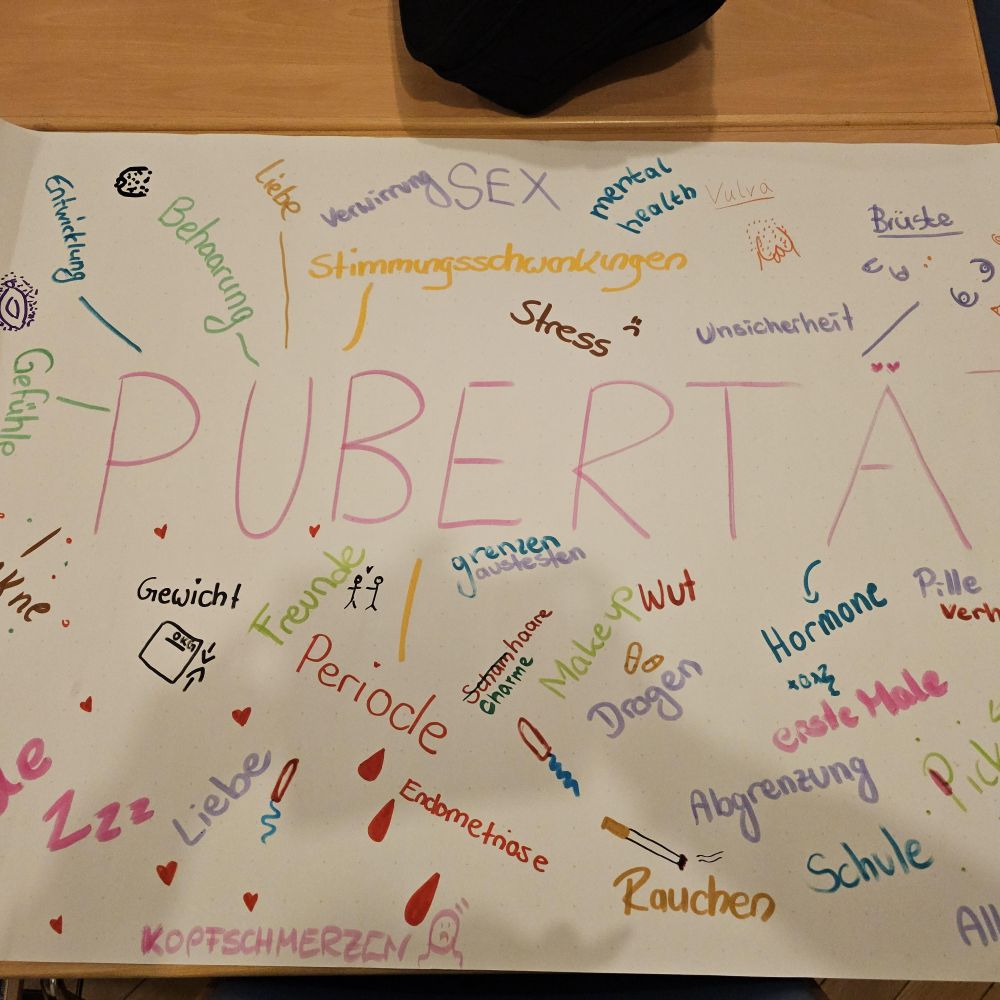 Entwicklung
Behaarung
Liebe
Verwirrung
SEX
mental
health
Vulva
Brüste
Stimmungsschwankungen
Stress
Unsicherheit
Gefühle
PUBERTÄ
Akne
Gewicht
0KG
Freunde
grenzen
austesten
Periode
Schamhaare
charme
Make up
Wut
Drogen
Hormone
Pille
verh
erste Male
Pick
Zzzz
Liebe
Endometriose
Abgrenzung
Rauchen
Schule
All
KOPFSCHMERZEN